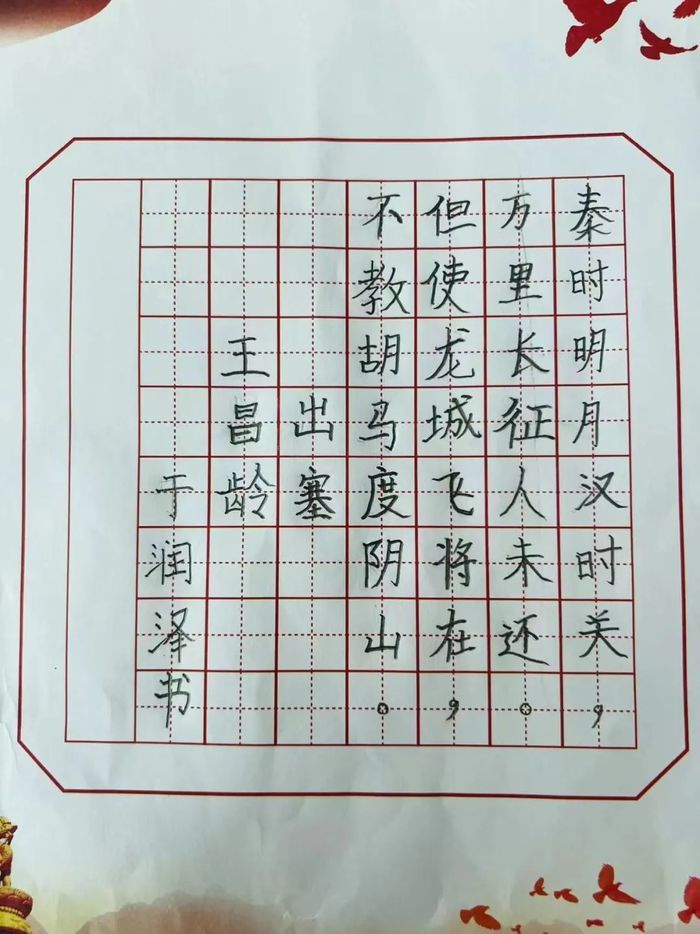 秦时明月汉时关，
万里长征人未还。
但使龙城飞将在，
不教胡马度阴山。
出塞
王昌龄
于润泽书